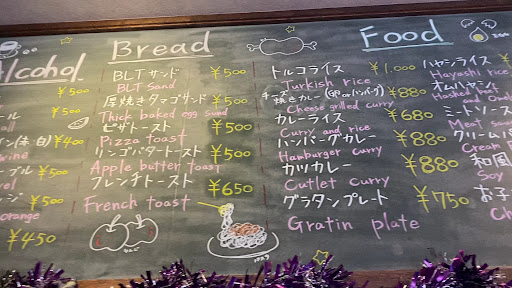 Alcohol
ール
イン(赤 白) ¥400
wine
orange
¥450
Bread
BLTサンド ¥500
BLT Sand
厚焼きタマゴサンド ¥500
Thick baked egg sand
ピザトースト ¥500
Pizza toast
リンゴバタートースト ¥500
Apple butter toast
フレンチトースト ¥650
French toast
Food
トルコライス ¥1,000
Turkish rice
チーズ焼きカレー ¥880
Cheese grilled curry
カレーライス ¥680
Curry and rice
ハンバーグカレー ¥880
Hamburger curry
カツカレー ¥880
Cutlet curry
グラタンプレート ¥750
Gratin plate
ハヤシライス
Hayashi rice
オムハヤシ
ミートソース
Meat
クリーム
Cream
和風
Soy
お子